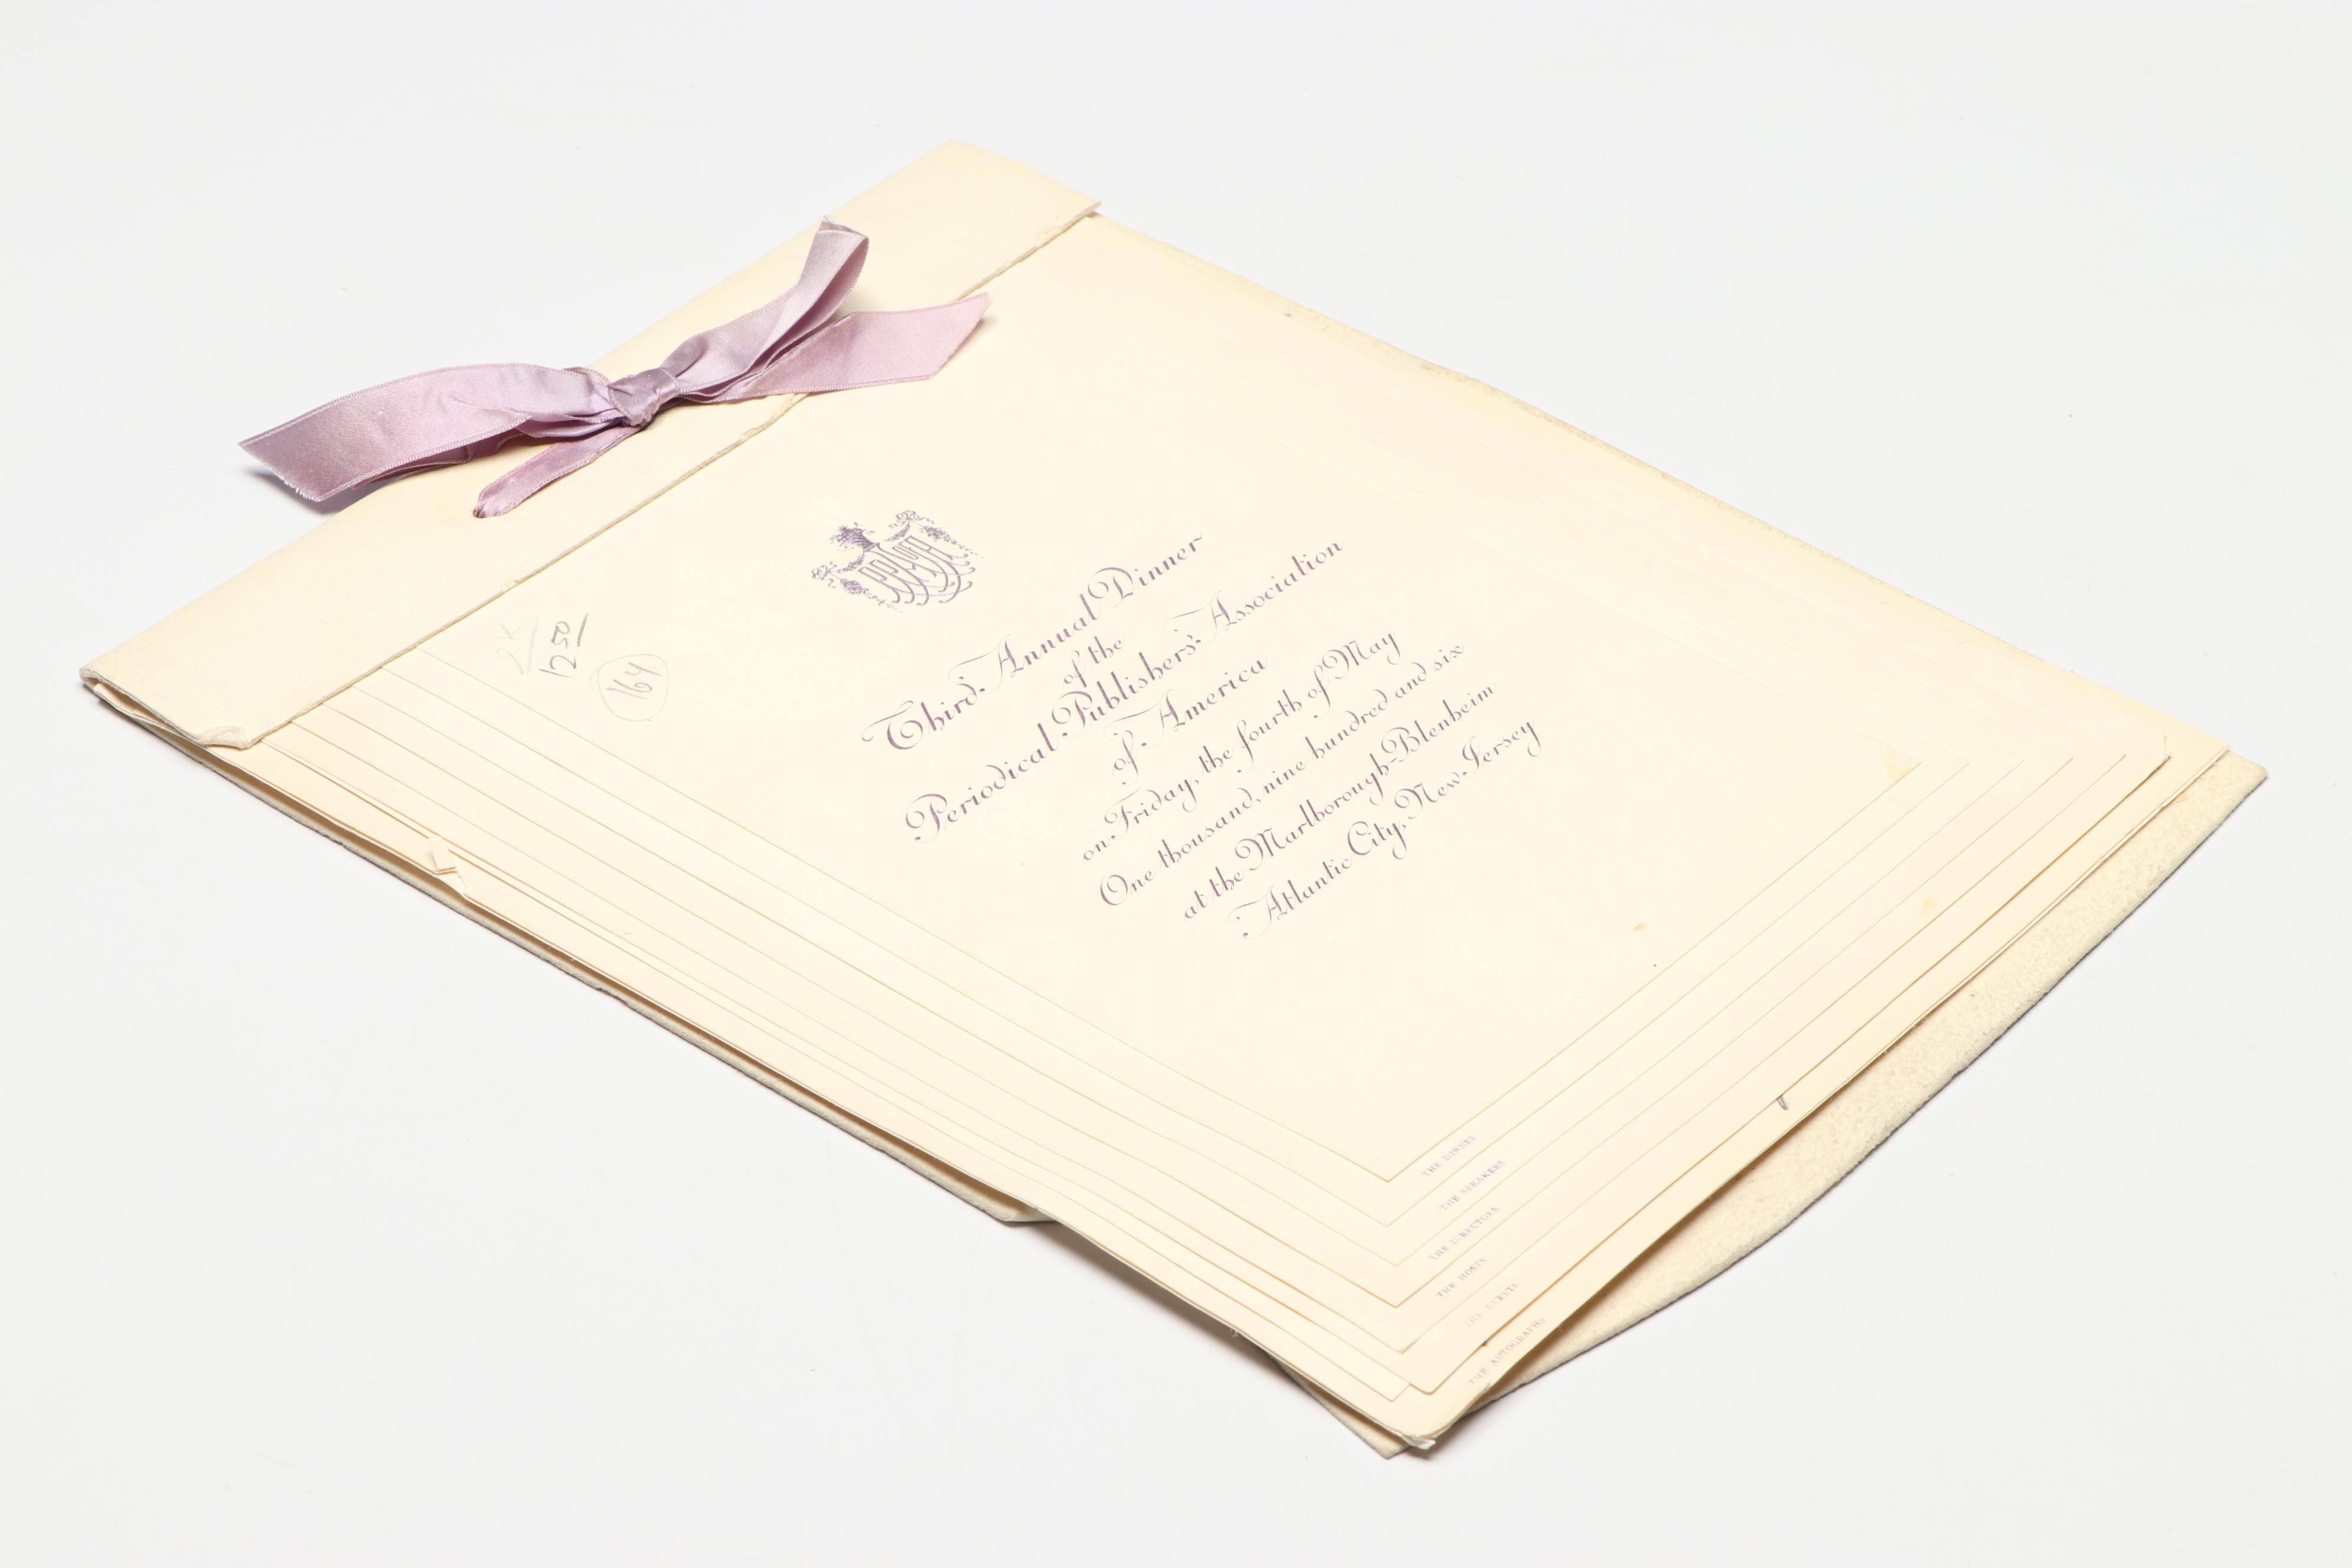 1250
164
PPA of A
Third Annual Dinner
of the
Periodical Publishers' Association
of America
on Friday, the fourth of May
One thousand, nine hundred and six
at the Marlborough-Blenheim
Atlantic City, New Jersey
THE DINNER
THE SPEAKERS
THE DIRECTORS
THE HOSTS
THE GUESTS
THE AUTOGRAPHS